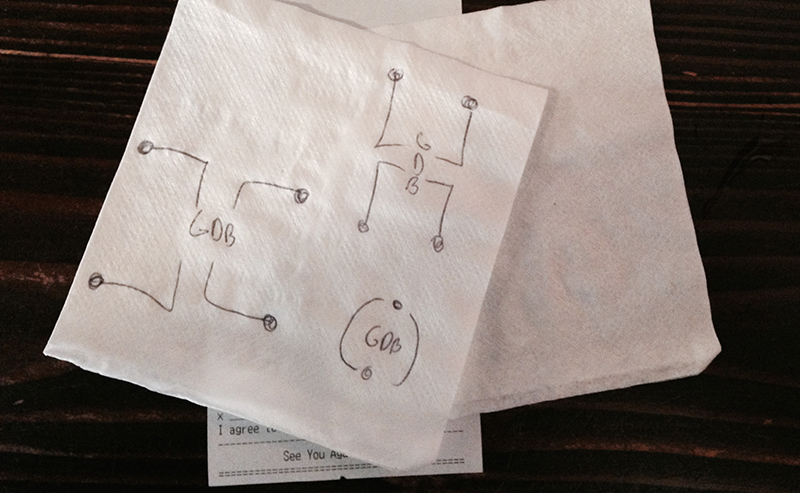 G
D
B
GDB
GDB
x
I agree to
See You Aga